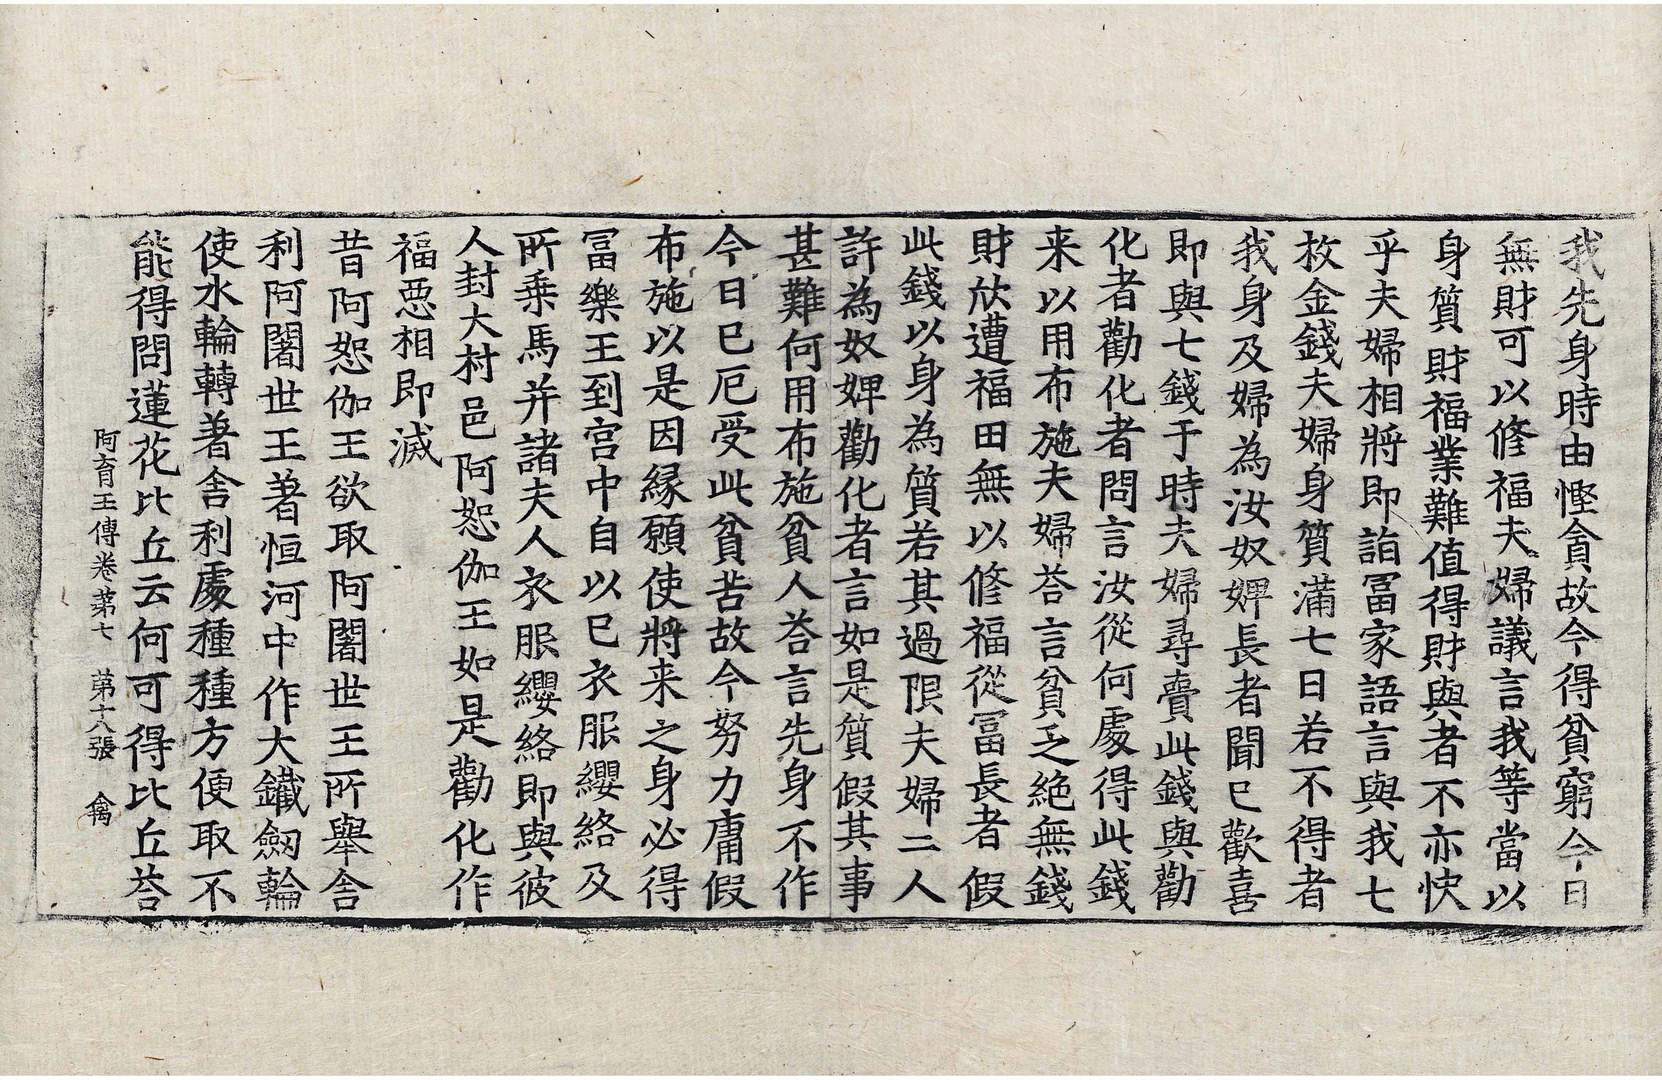 我先身時由慳貪故今得貧窮今日
無財可以修福夫婦議言我等當以
身質財福業難值得財與者不亦快
乎夫婦相將即詣冨家語言與我七
枚金錢夫婦身質滿七日若不得者
我身及婦為汝奴婢長者聞已歡喜
即與七錢于時夫婦尋賷此錢與勸
化者勸化者問言汝從何處得此錢
来以用布施夫婦荅言貧乏絶無錢
財欣遭福田無以修福從冨長者假
此錢以身為質若其過限夫婦二人
許為奴婢勸化者言如是質假其事
甚難何用布施貧人荅言先身不作
今日已厄受此貧苦故今努力庸假
布施以是因縁願使將来之身必得
冨樂王到宫中自以已衣服纓絡及
所乗馬并諸夫人衣服纓絡即與彼
人封大村邑阿恕伽王如是勸化作
福惡相即滅
昔阿恕伽王欲取阿闍世王所舉舎
利阿闍世王著恒河中作大鐵劒輪
使水輪轉著舎利處種種方便取不
能得問蓮花比丘云何可得比丘荅
阿育王傳卷第七 第十八張 禽